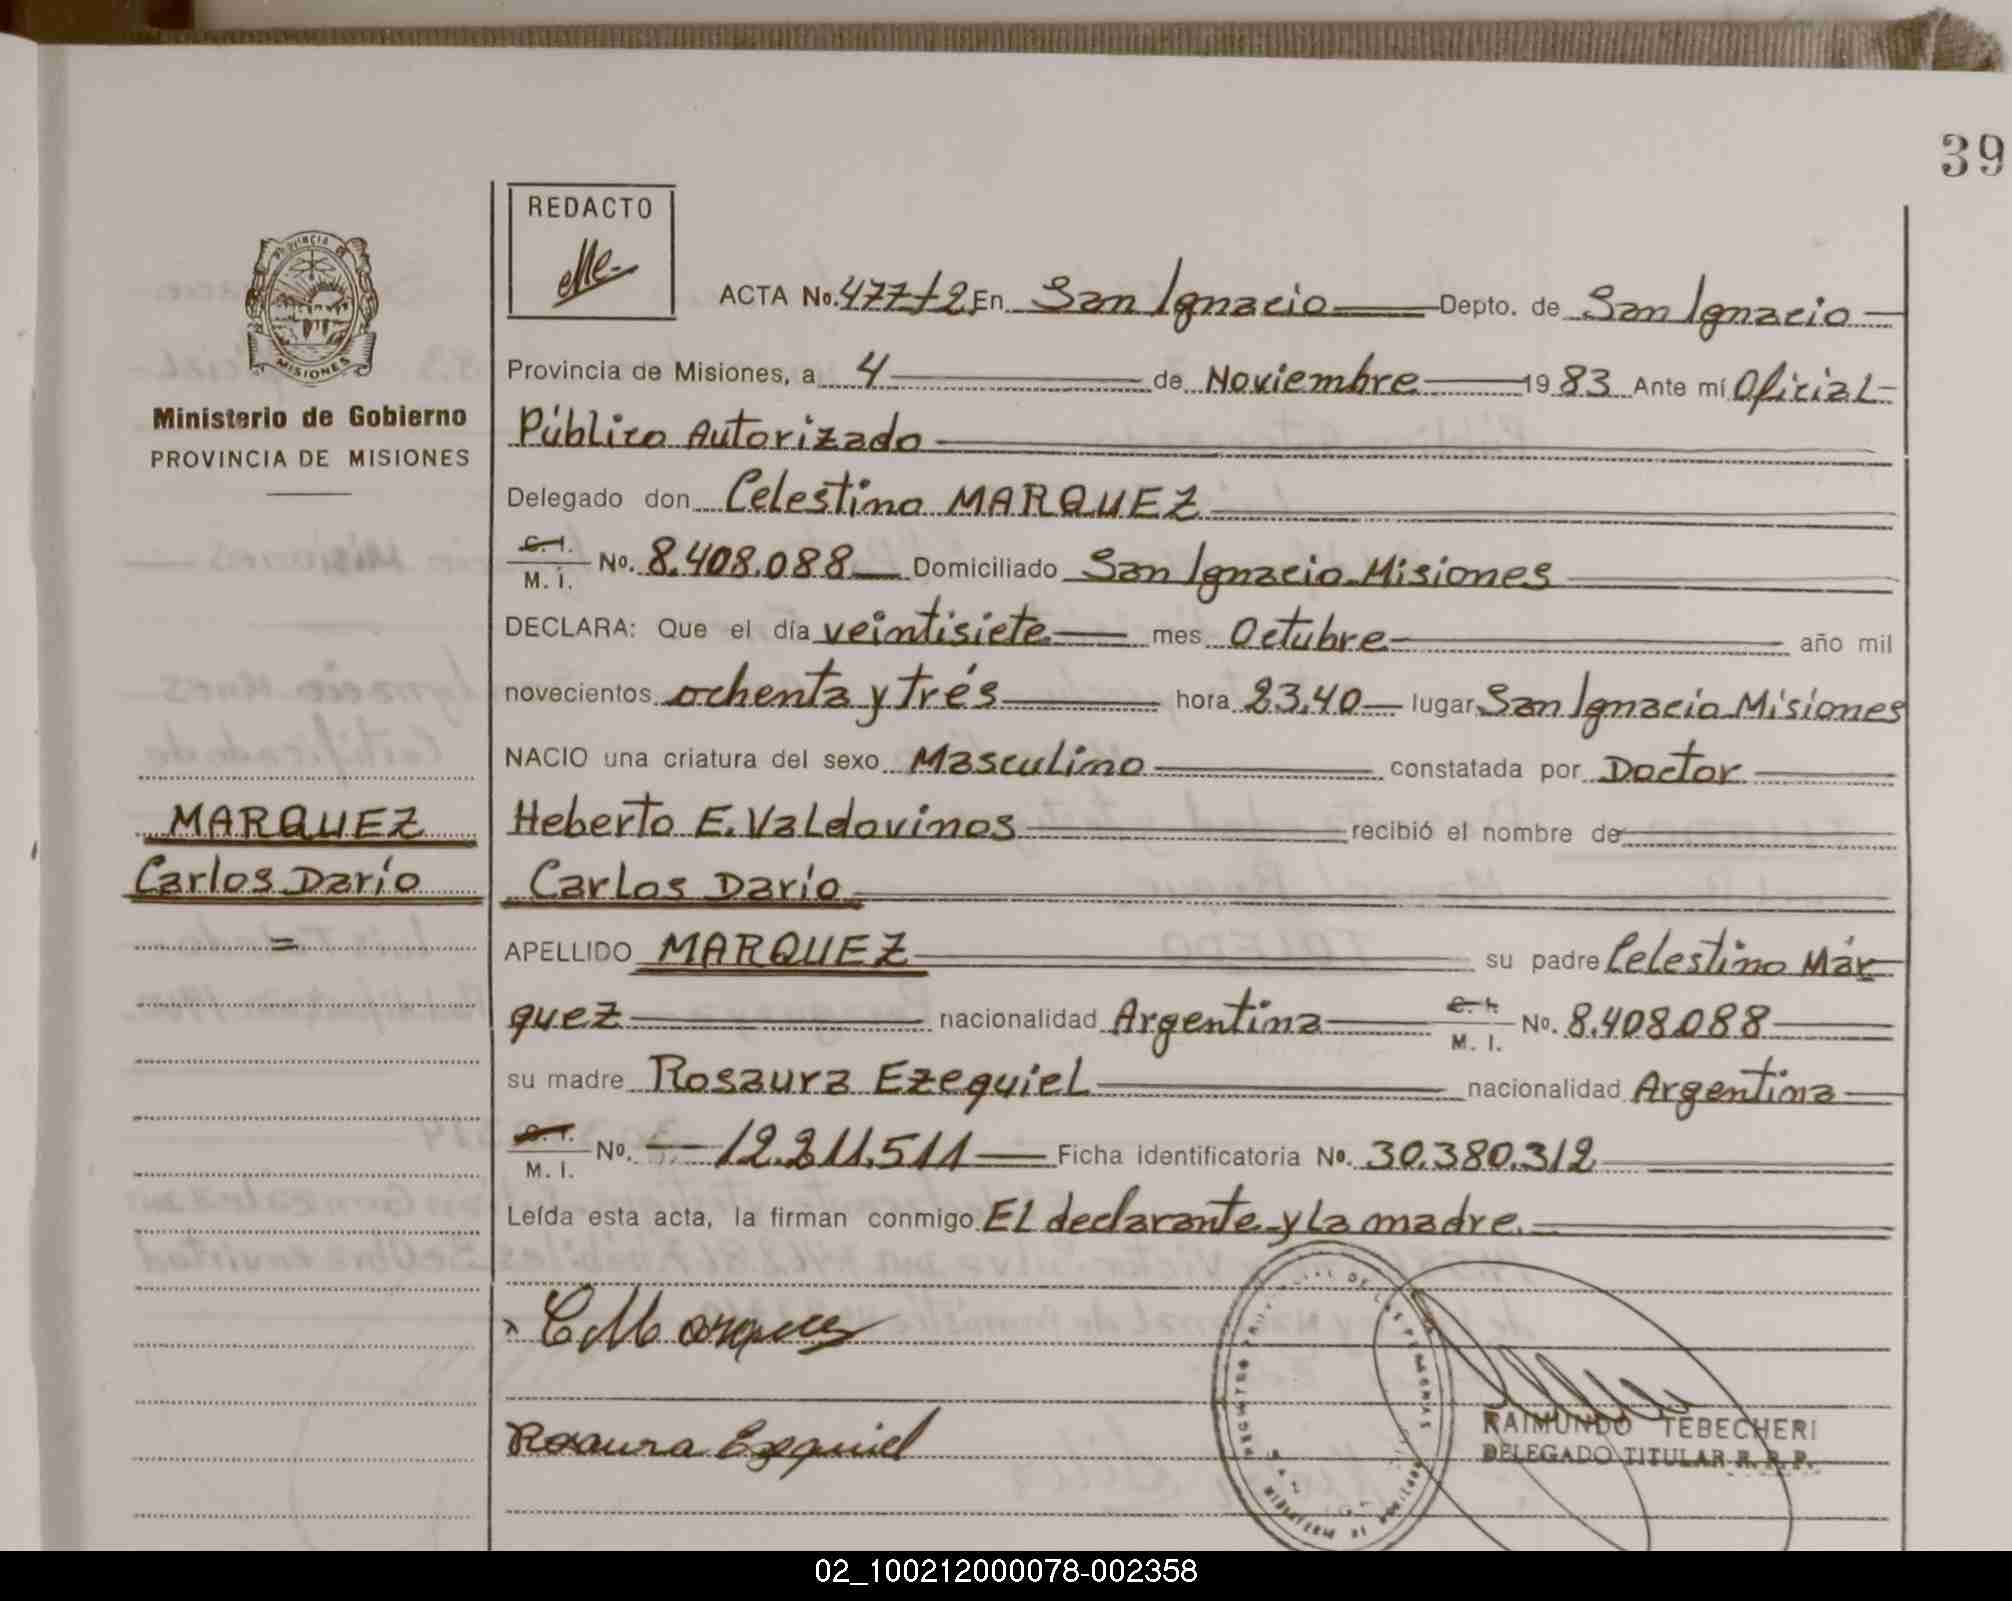 39
REDACTO
PROVINCIA DE
MISIONES
Ministerio de Gobierno
PROVINCIA DE MISIONES
ACTA No. 477 t2 En San Ignacio Depto. de San Ignacio
Provincia de Misiones, a 4 de Noviembre 1983 Ante mí Oficial
Público Autorizado
Delegado don Celestino MARQUEZ
C. I. M. I. No. 8.408.088 Domiciliado San Ignacio Misiones
DECLARA: Que el día veintisiete mes Octubre año mil
novecientos ochenta y trés hora 23,40 lugar San Ignacio Misiones
NACIO una criatura del sexo Masculino constatada por Doctor
Heberto E. Valdovinos recibió el nombre de
Carlos Darío
APELLIDO MARQUEZ su padre Celestino Már
quez nacionalidad Argentina C. I. M. I. No. 8.408.088
su madre Rosaura Ezequiel nacionalidad Argentina
C. I. M. I. No. 12.211.511 Ficha identificatoria No. 30.380.312
Leída esta acta, la firman conmigo El declarante y La madre.
MARQUEZ
Carlos Darío
=
C Marquez
Rosaura Ezequiel
RAIMUNDO TEBECHERI
DELEGADO TITULAR R. P. P.
02_100212000078-002358